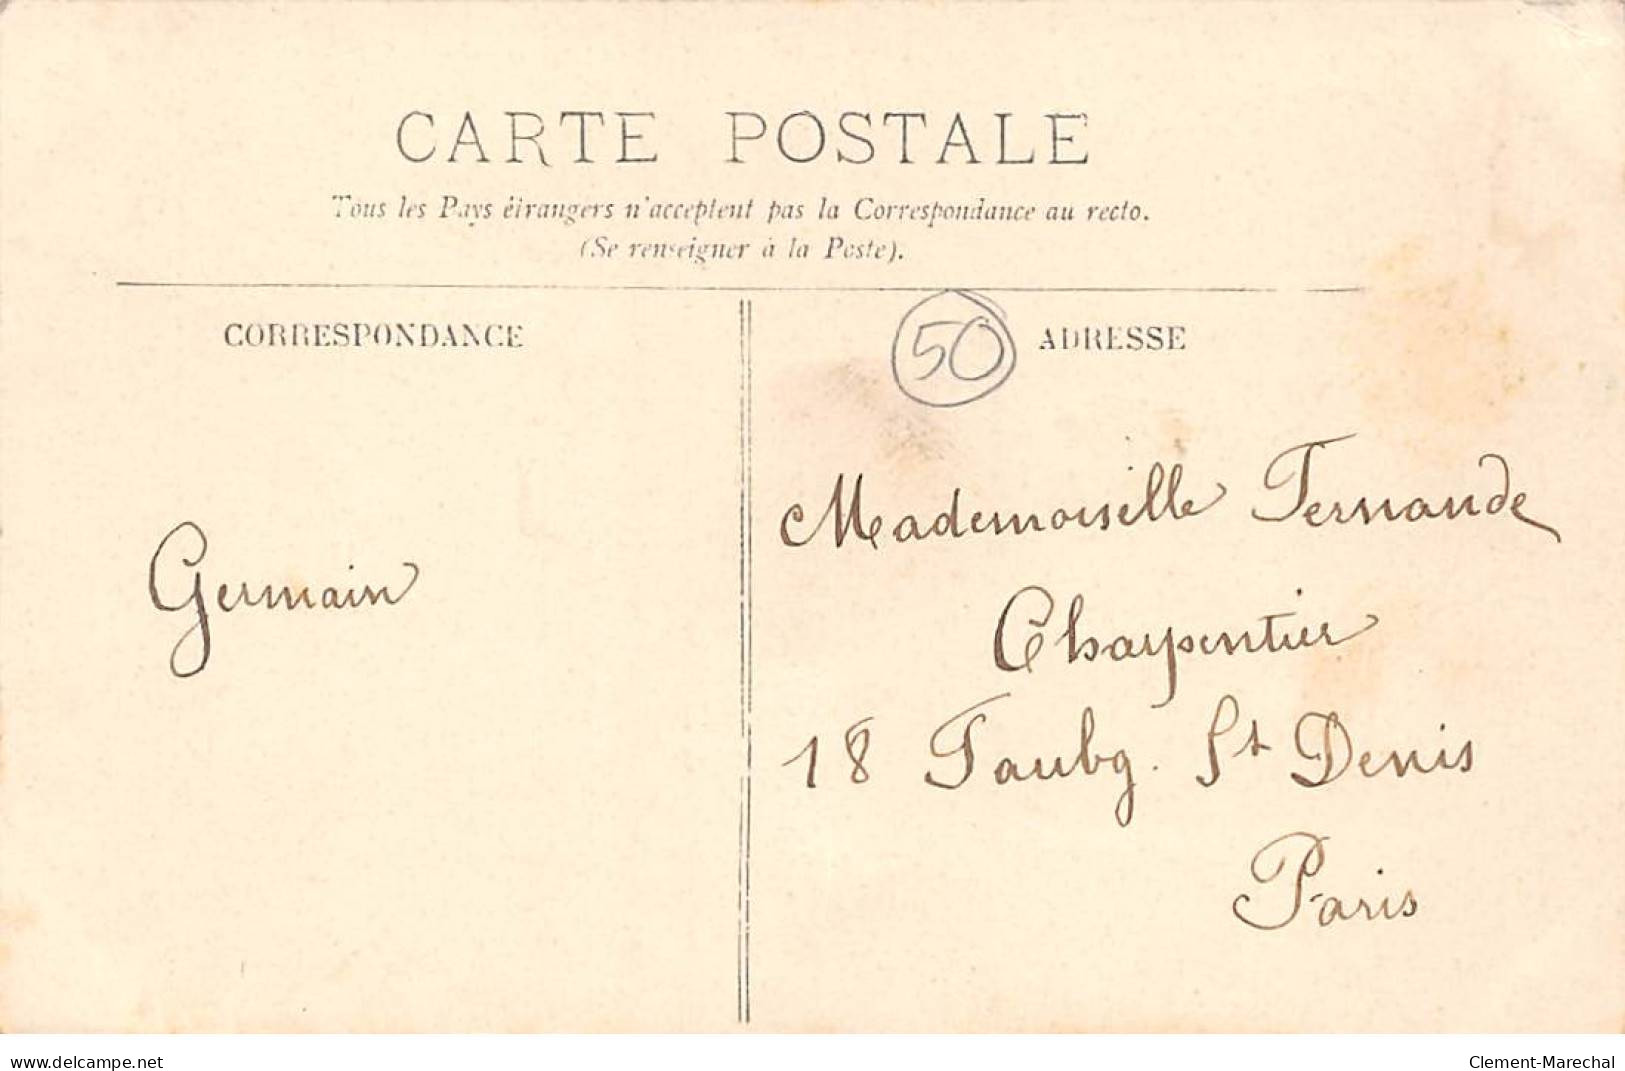 CARTE POSTALE
Tous les Pays étrangers n'acceptent pas la Correspondance au recto.
(Se renseigner à la Poste).
CORRESPONDANCE
50
ADRESSE
Germain
Mademoiselle Fernande
Charpentier
18 Faubg. St Denis
Paris
www.delcampe.net
Clement-Marechal